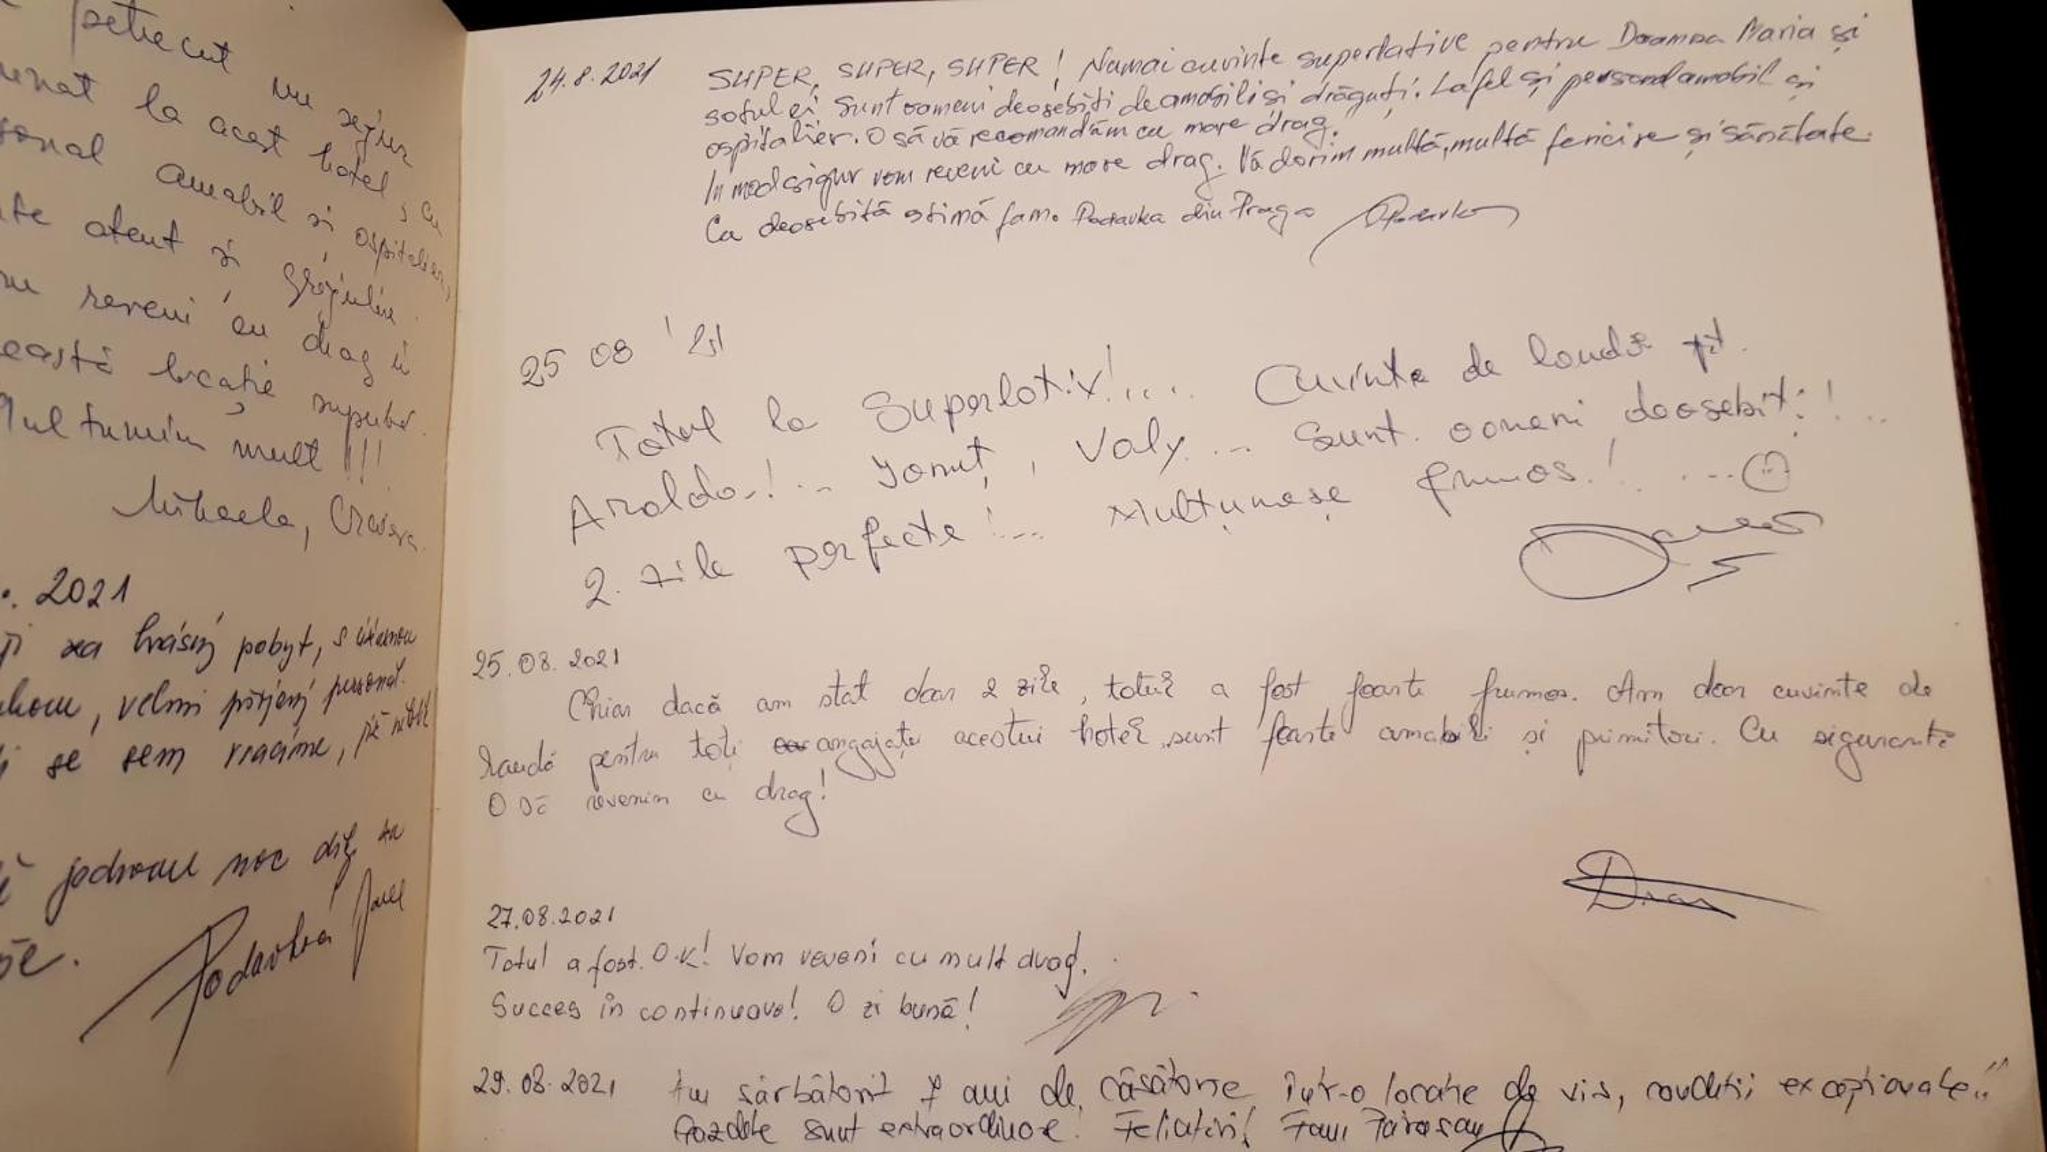 petrecut un sejur
minunat la acest hotel, cu
personal amabil si ospitalier,
atent si grijuliu.
reveni cu drag in
această locație superbă.
Mulțumim mult !!!
Mihaela, Craiova.
. 2021
za krásný pobyt, s úžasnou
, velmi příjemný personál.
se sem vracíme,
jednou noc
Podavka
24.8.2021 SUPER, SUPER, SUPER! Numai cuvinte superlative pentru Doamna Maria și
soțul ei. Sunt oameni deosebiți de amabili și drăguți. La fel și personal amabil și
ospitalier. O să vă recomandăm cu mare drag.
In mod sigur vom reveni cu mare drag. Vă dorim multă, multă fericire și sănătate.
Cu deosebită stimă fam. Podavka din Praga
25 08 '21
Totul la Superlativ!.... Cuvinte de laudă pt.
Analda.!... Ionuț, Valy... Sunt. oameni deosebiți!...
2. zile perfecte!... Mulțumesc frumos.! ...☺
25.08.2021
Chiar dacă am stat doar 2 zile, totul a fost foarte frumos. Am doar cuvinte de
laudă pentru toți angajații acestui hotel, sunt foarte amabili și primitori. Cu siguranță
O să revenim cu drag!
27.08.2021
Totul a fost O.K! Vom reveni cu mult drag.
Succes în continuare! O zi bună!
29.08.2021 Am sărbătorit 7 ani de căsătorie într-o locație de vis, condiții excepționale!!
Gazdele sunt extraordinare! Felicitări! Fam